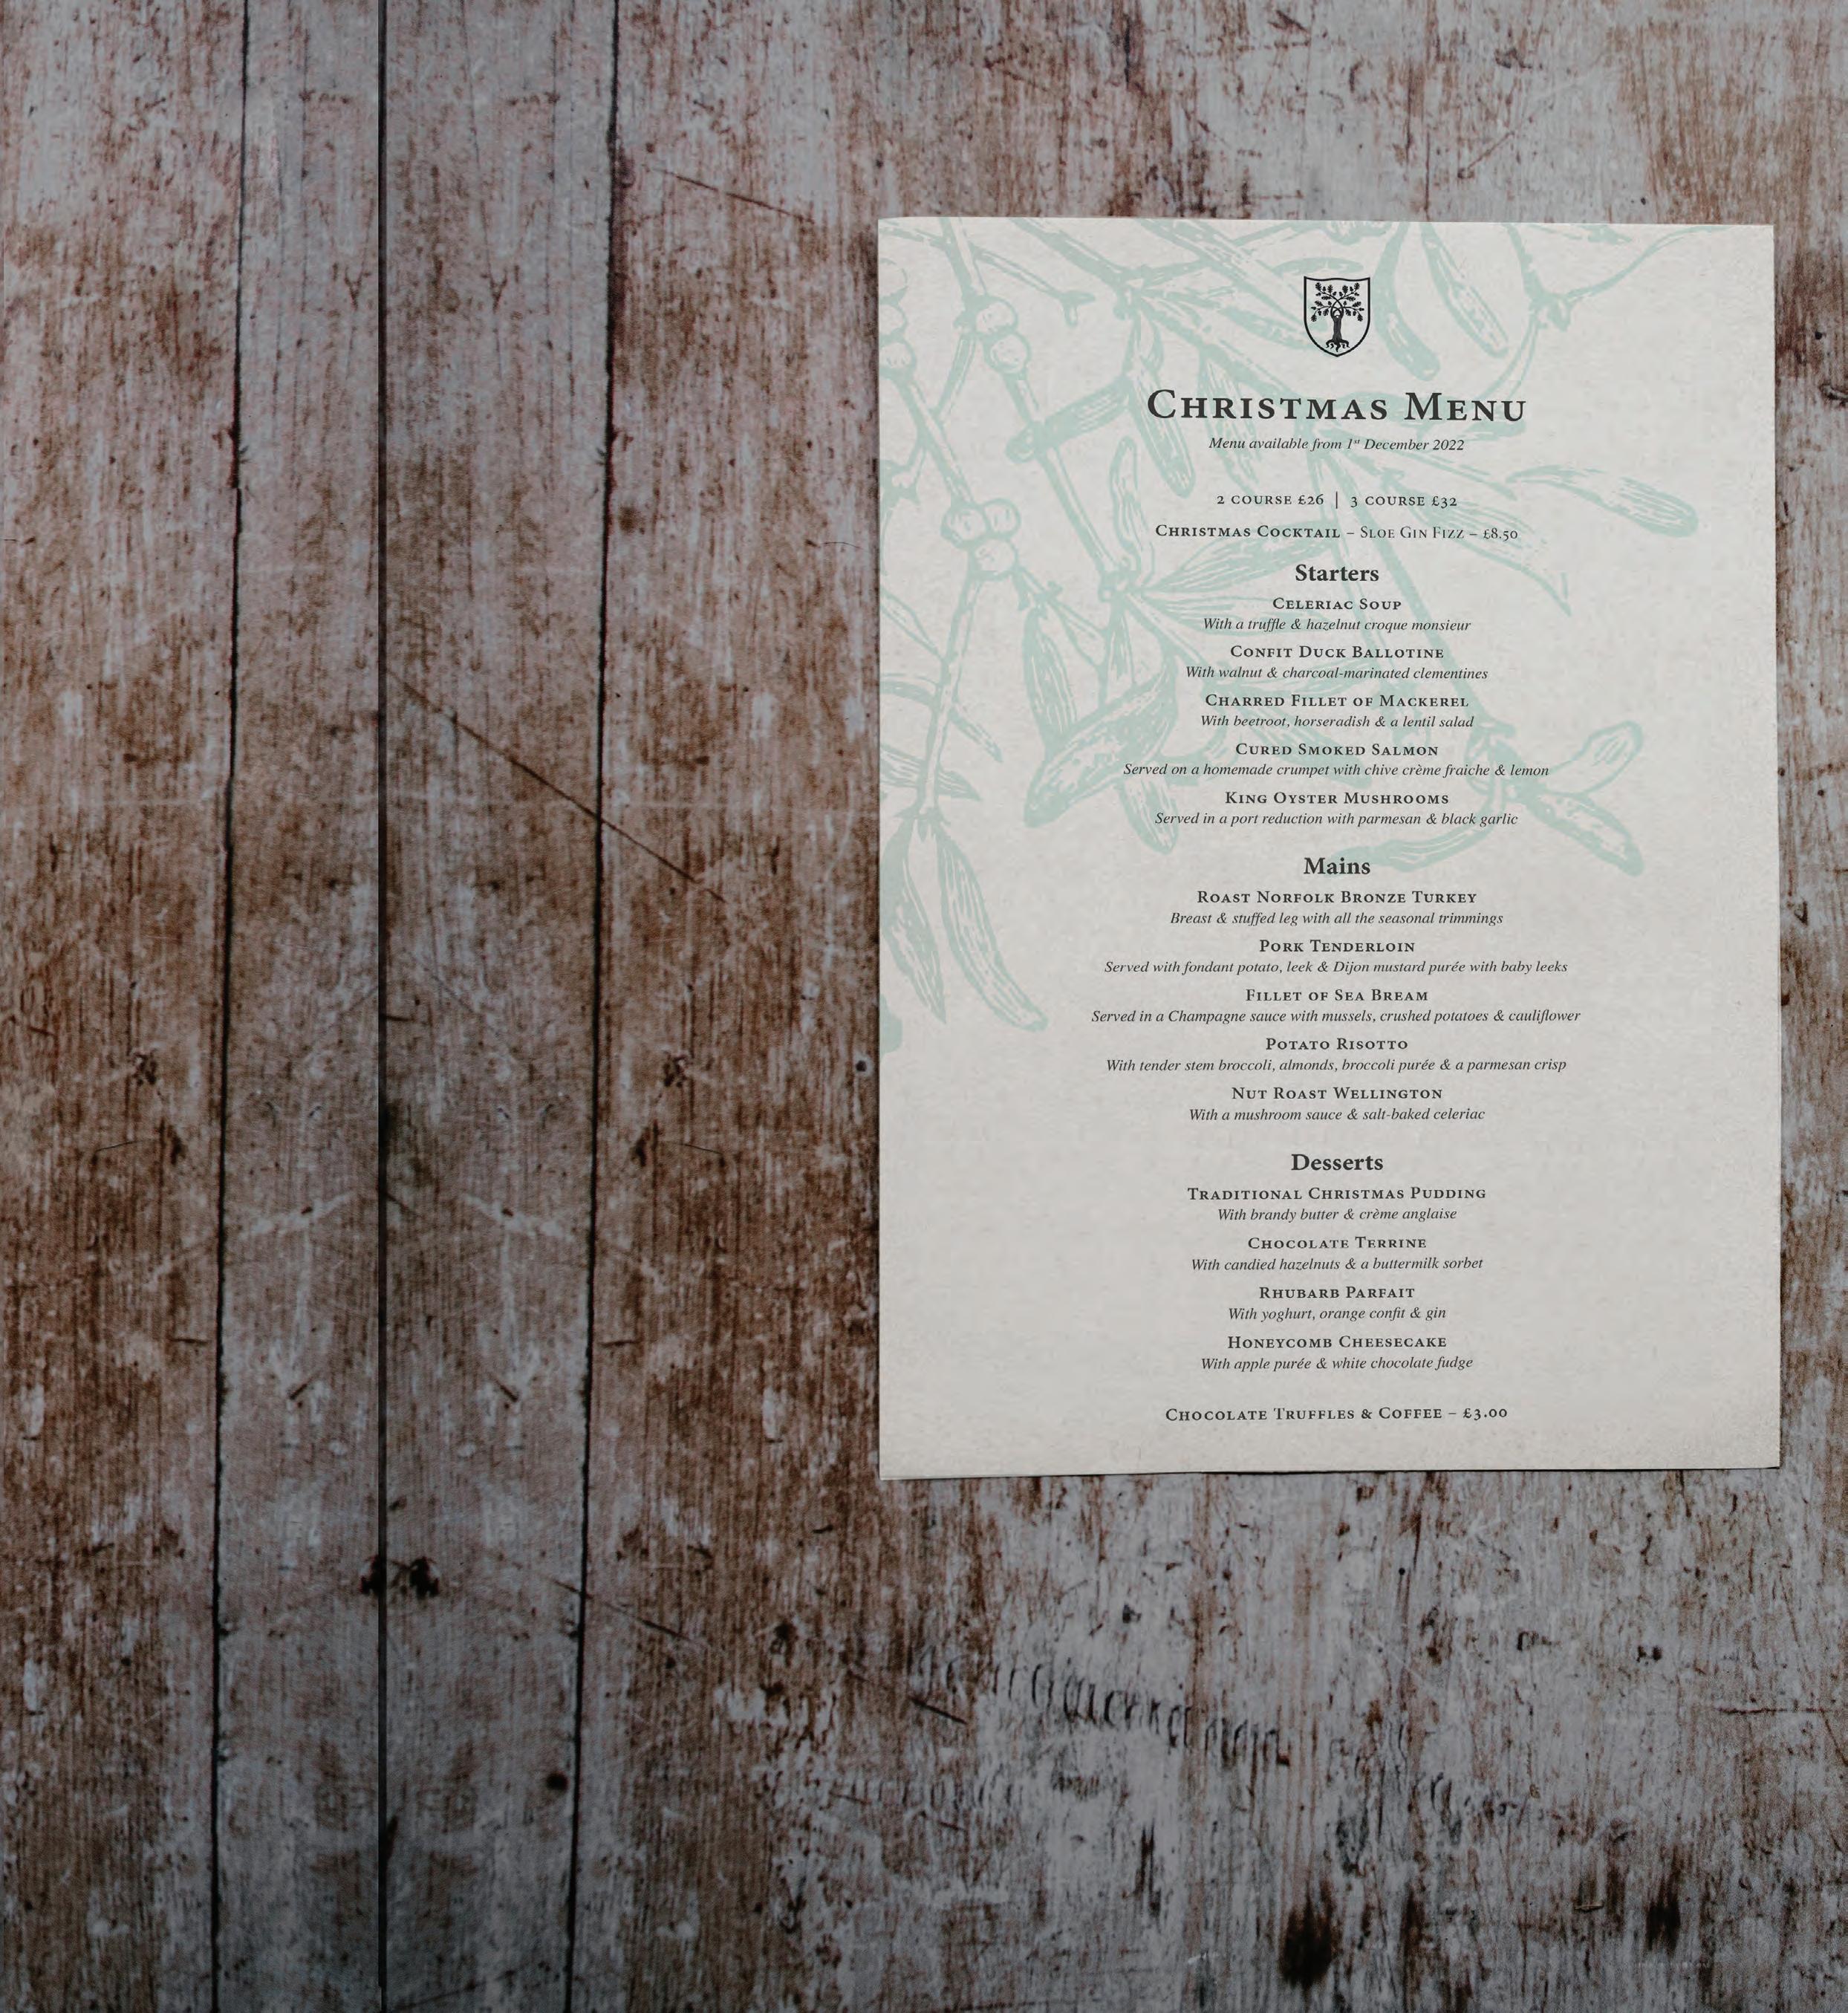 Christmas Menu
Menu available from 1st December 2022
2 course £26 | 3 course £32
Christmas Cocktail – Sloe Gin Fizz – £8.50
Starters
Celeriac Soup
With a truffle & hazelnut croque monsieur
Confit Duck Ballotine
With walnut & charcoal-marinated clementines
Charred Fillet of Mackerel
With beetroot, horseradish & a lentil salad
Cured Smoked Salmon
Served on a homemade crumpet with chive crème fraiche & lemon
King Oyster Mushrooms
Served in a port reduction with parmesan & black garlic
Mains
Roast Norfolk Bronze Turkey
Breast & stuffed leg with all the seasonal trimmings
Pork Tenderloin
Served with fondant potato, leek & Dijon mustard purée with baby leeks
Fillet of Sea Bream
Served in a Champagne sauce with mussels, crushed potatoes & cauliflower
Potato Risotto
With tender stem broccoli, almonds, broccoli purée & a parmesan crisp
Nut Roast Wellington
With a mushroom sauce & salt-baked celeriac
Desserts
Traditional Christmas Pudding
With brandy butter & crème anglaise
Chocolate Terrine
With candied hazelnuts & a buttermilk sorbet
Rhubarb Parfait
With yoghurt, orange confit & gin
Honeycomb Cheesecake
With apple purée & white chocolate fudge
Chocolate Truffles & Coffee – £3.00